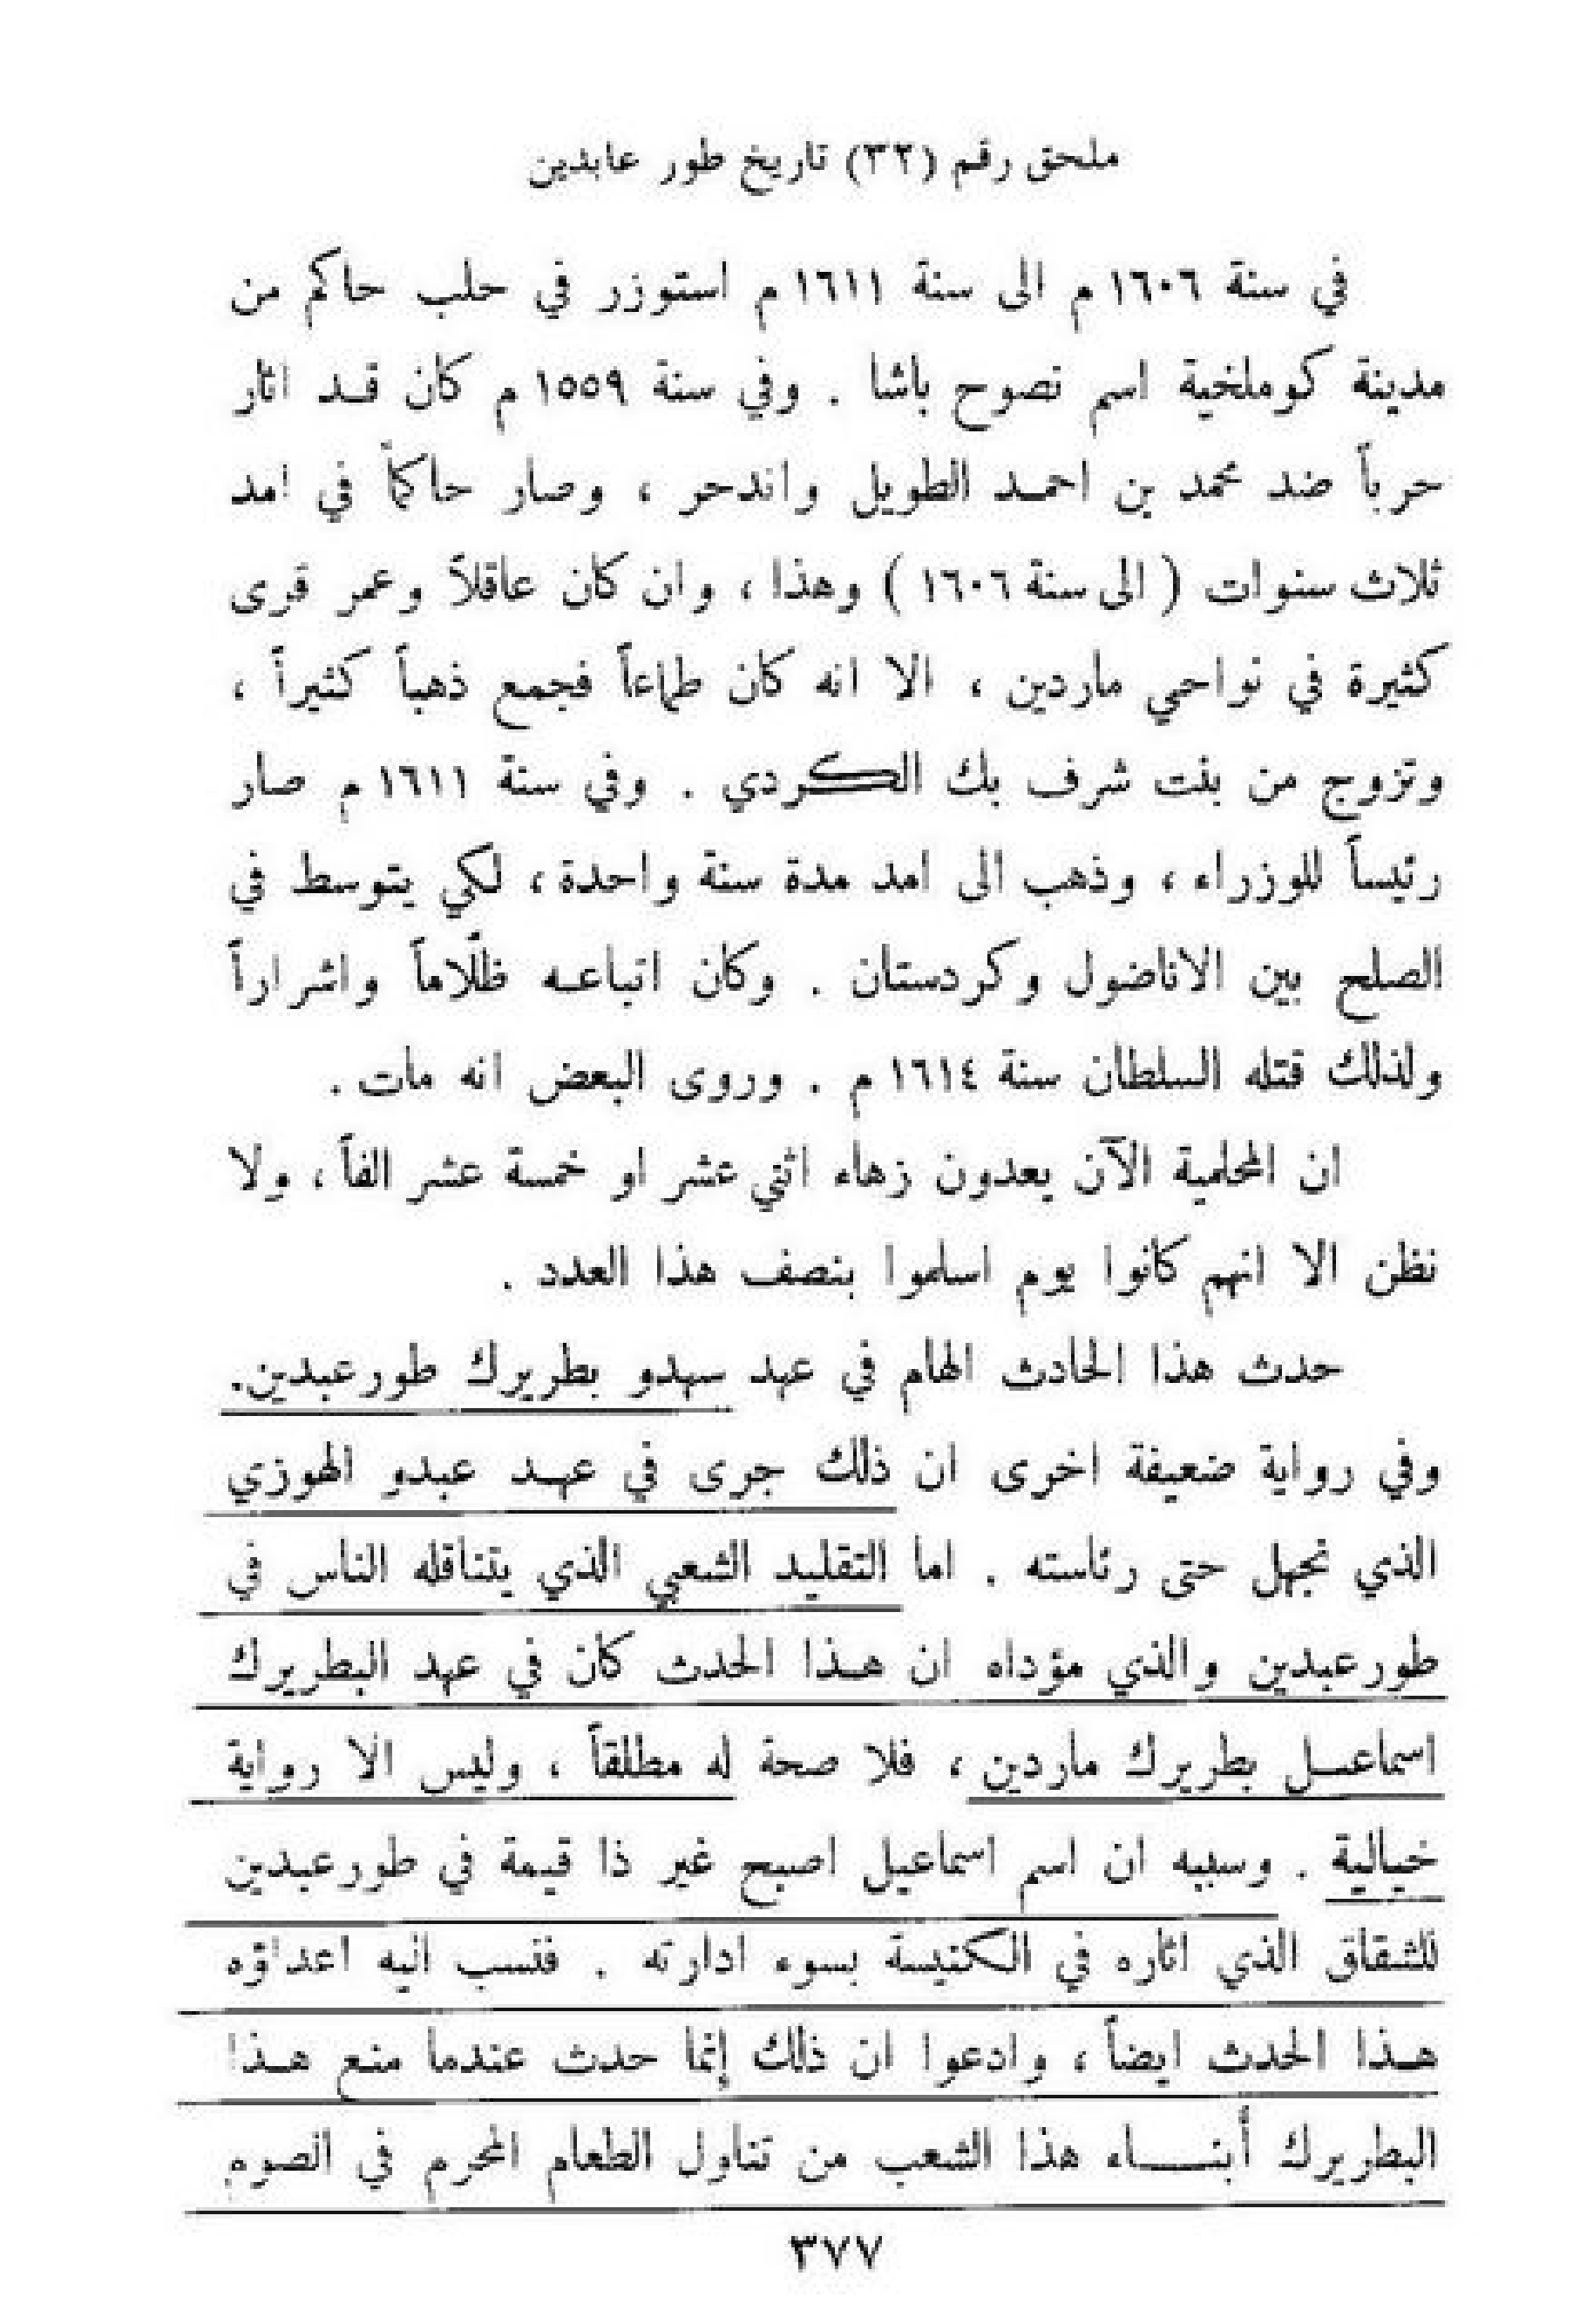 ملحق رقم (٣٢) تاريخ طور عابدين
في سنة ١٦٠٦ م الى سنة ١٦١١ م استوزر في حلب حاكم من
مدينة كوملخية اسم نصوح باشا . وفي سنة ١٥٥٩ م كان قد اثار
حرباً ضد محمد بن احمد الطويل واندحر ، وصار حاكماً في امد
ثلاث سنوات ( الى سنة ١٦٠٦ ) وهذا ، وان كان عاقلاً وعمر قرى
كثيرة في نواحي ماردين ، الا انه كان طماعاً فجمع ذهباً كثيراً ،
وتزوج من بنت شرف بك الكردي . وفي سنة ١٦١١ م صار
رئيساً للوزراء ، وذهب الى امد مدة سنة واحدة ، لكي يتوسط في
الصلح بين الاناضول وكردستان . وكان اتباعه ظلّاماً واشراراً
ولذلك قتله السلطان سنة ١٦١٤ م . وروى البعض انه مات .
ان المحلمية الآن يعدون زهاء اثني عشر او خمسة عشر الفاً ، ولا
نظن الا انهم كانوا يوم اسلموا بنصف هذا العدد .
حدث هذا الحادث الهام في عهد سهدو بطريرك طورعبدين.
وفي رواية ضعيفة اخرى ان ذلك جرى في عهد عبدو الهوزي
الذي نجهل حتى رئاسته . اما التقليد الشعبي الذي يتناقله الناس في
طورعبدين والذي مؤداه ان هذا الحدث كان في عهد البطريرك
اسماعيل بطريرك ماردين ، فلا صحة له مطلقاً ، وليس الا رواية
خيالية . وسببه ان اسم اسماعيل اصبح غير ذا قيمة في طورعبدين
للشقاق الذي اثاره في الكنيسة بسوء ادارته . فنسب اليه اعداؤه
هذا الحدث ايضاً ، وادعوا ان ذلك إنما حدث عندما منع هذا
البطريرك أبناء هذا الشعب من تناول الطعام المحرم في الصوم
٣٧٧